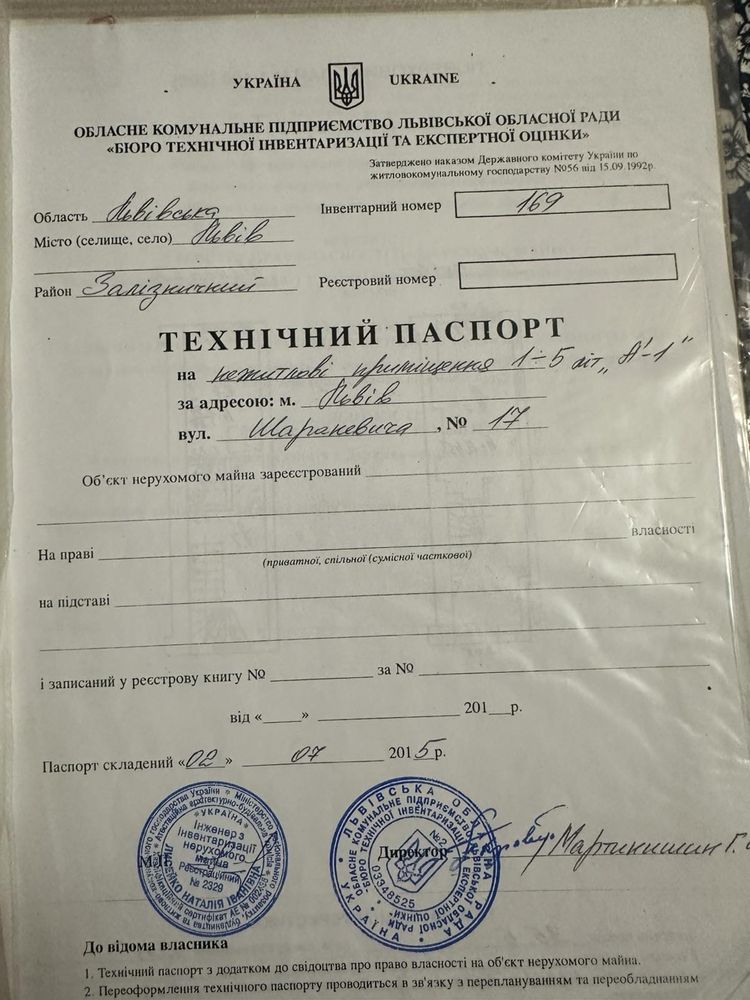 УКРАЇНА UKRAINE
ОБЛАСНЕ КОМУНАЛЬНЕ ПІДПРИЄМСТВО ЛЬВІВСЬКОЇ ОБЛАСНОЇ РАДИ
«БЮРО ТЕХНІЧНОЇ ІНВЕНТАРИЗАЦІЇ ТА ЕКСПЕРТНОЇ ОЦІНКИ»
Затверджено наказом Державного комітету України по
житловокомунальному господарству №56 від 15.09.1992р.
Область Львівська Інвентарний номер 169
Місто (селище, село) Львів
Район Залізничний Реєстровий номер
ТЕХНІЧНИЙ ПАСПОРТ
на нежитлові приміщення 1÷5 літ „А'-1"
за адресою: м. Львів
вул. Шараневича, № 17
Об'єкт нерухомого майна зареєстрований
власності
На праві
(приватної, спільної (сумісної часткової)
на підставі
і записаний у реєстрову книгу № за №
від « » 201 р.
Паспорт складений «02» 07 2015р.
УКРАЇНА
Інженер з
інвентаризації
нерухомого
майна
Реєстраційний
№ 2329
НАТАЛІЯ ІВАНІВНА
М.П.
ЛЬВІВСЬКА
ОБЛАСНЕ КОМУНАЛЬНЕ ПІДПРИЄМСТВО ЛЬВІВСЬКОЇ ОБЛАСНОЇ РАДИ
БЮРО ТЕХНІЧНОЇ ІНВЕНТАРИЗАЦІЇ ТА ЕКСПЕРТНОЇ ОЦІНКИ
№2
03348525
УКРАЇНА
Директор Мартинишин Г.
До відома власника
1. Технічний паспорт з додатком до свідоцтва про право власності на об'єкт нерухомого майна.
2. Переоформлення технічного паспорту проводиться в зв'язку з переплануванням та переобладнанням